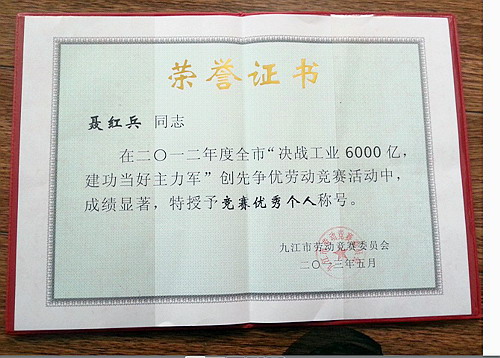 荣誉证书
聂红兵 同志
在二〇一二年度全市“决战工业 6000 亿,
建功当好主力军”创先争优劳动竞赛活动中,
成绩显著，特授予竞赛优秀个人称号。
九江市劳动竞赛委员会
二〇一三年五月